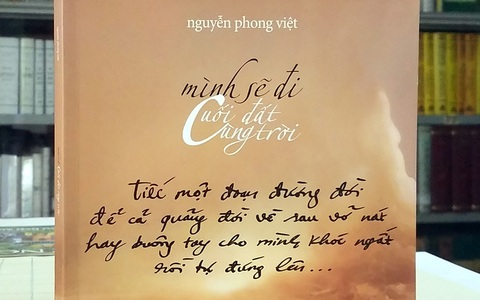 nguyễn phong việt
mình sẽ đi
Cuối đất
Cùng trời
tiếc một đoạn đường đời
để cả quãng đời về sau vỡ nát
hay buông tay cho mình khóc ngất
rồi tự đứng lên...